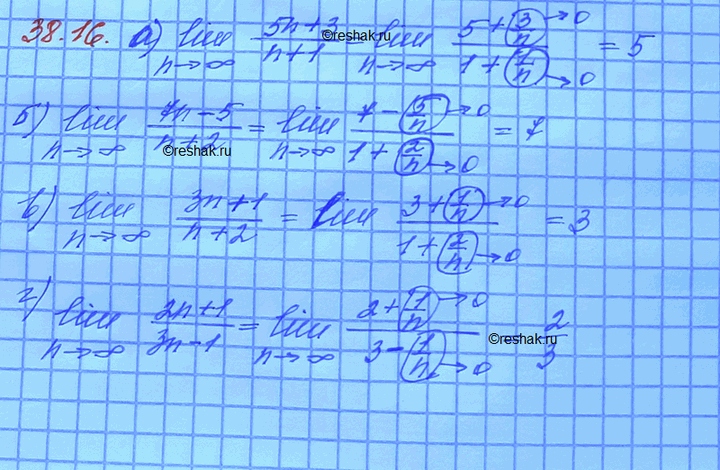 38.16. а) lim n→∞ (5n+3)/(n+1) = lim n→∞ (5+3/n→0)/(1+1/n→0) = 5
©reshak.ru
б) lim n→∞ (7n-5)/(n+2) = lim n→∞ (7-5/n→0)/(1+2/n→0) = 7
©reshak.ru
в) lim n→∞ (3n+1)/(n+2) = lim (3+1/n→0)/(1+2/n→0) = 3
г) lim n→∞ (2n+1)/(3n-1) = lim n→∞ (2+1/n→0)/(3-1/n→0) 2/3
©reshak.ru